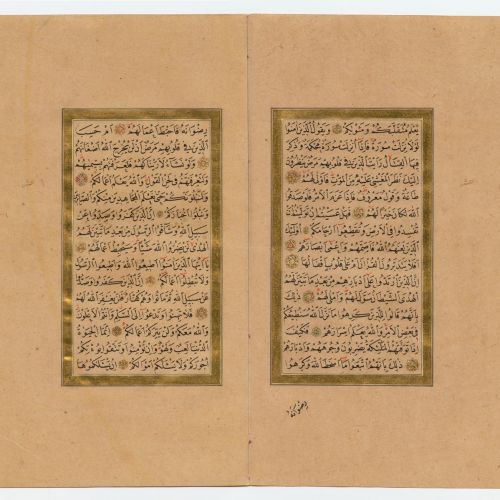 يَعْلَمُ مُتَقَلَّبَكُمْ وَمَثْوٰيكُمْ وَيَقُولُ الَّذِينَ اٰمَنُوا
لَوْلَا نُزِّلَتْ سُورَةٌ فَاِذَا اُنْزِلَتْ سُورَةٌ مُحْكَمَةٌ وَذُكِرَ
فِيهَا الْقِتَالُ رَاَيْتَ الَّذِينَ فِي قُلُوبِهِمْ مَرَضٌ يَنْظُرُونَ
اِلَيْكَ نَظَرَ الْمَغْشِيِّ عَلَيْهِ مِنَ الْمَوْتِ فَاَوْلٰى لَهُمْ
طَاعَةٌ وَقَوْلٌ مَعْرُوفٌ فَاِذَا عَزَمَ الْاَمْرُ فَلَوْ صَدَقُوا
اللّٰهَ لَكَانَ خَيْرًا لَهُمْ فَهَلْ عَسَيْتُمْ اِنْ تَوَلَّيْتُمْ اَنْ
تُفْسِدُوا فِي الْاَرْضِ وَتُقَطِّعُوا اَرْحَامَكُمْ اُولٰئِكَ
الَّذِينَ لَعَنَهُمُ اللّٰهُ فَاَصَمَّهُمْ وَاَعْمٰى اَبْصَارَهُمْ
اَفَلَا يَتَدَبَّرُونَ الْقُرْاٰنَ اَمْ عَلٰى قُلُوبٍ اَقْفَالُهَا
اِنَّ الَّذِينَ ارْتَدُّوا عَلٰى اَدْبَارِهِمْ مِنْ بَعْدِ مَا تَبَيَّنَ لَهُمُ
الْهُدَى الشَّيْطَانُ سَوَّلَ لَهُمْ وَاَمْلٰى لَهُمْ ذٰلِكَ
بِاَنَّهُمْ قَالُوا لِلَّذِينَ كَرِهُوا مَا نَزَّلَ اللّٰهُ سَنُطِيعُكُمْ
فِي بَعْضِ الْاَمْرِ وَاللّٰهُ يَعْلَمُ اِسْرَارَهُمْ فَكَيْفَ
اِذَا تَوَفَّتْهُمُ الْمَلٰئِكَةُ يَضْرِبُونَ وُجُوهَهُمْ وَاَدْبَارَهُمْ
ذٰلِكَ بِاَنَّهُمُ اتَّبَعُوا مَا اَسْخَطَ اللّٰهَ وَكَرِهُوا
رِضْوَانَهُ
رِضْوَانَهُ فَاَحْبَطَ اَعْمَالَهُمْ اَمْ حَسِبَ
الَّذِينَ فِي قُلُوبِهِمْ مَرَضٌ اَنْ لَنْ يُخْرِجَ اللّٰهُ اَضْغَانَهُمْ
وَلَوْ نَشَاءُ لَاَرَيْنَاكَهُمْ فَلَعَرَفْتَهُمْ بِسِيمٰيهُمْ
وَلَتَعْرِفَنَّهُمْ فِي لَحْنِ الْقَوْلِ وَاللّٰهُ يَعْلَمُ اَعْمَالَكُمْ
وَلَنَبْلُوَنَّكُمْ حَتّٰى نَعْلَمَ الْمُجَاهِدِينَ مِنْكُمْ وَالصَّابِرِينَ
وَنَبْلُوَا اَخْبَارَكُمْ اِنَّ الَّذِينَ كَفَرُوا وَصَدُّوا عَنْ
سَبِيلِ اللّٰهِ وَشَاقُّوا الرَّسُولَ مِنْ بَعْدِ مَا تَبَيَّنَ لَهُمُ
الْهُدٰى لَنْ يَضُرُّوا اللّٰهَ شَيْئًا وَسَيُحْبِطُ اَعْمَالَهُمْ
يَا اَيُّهَا الَّذِينَ اٰمَنُوا اَطِيعُوا اللّٰهَ وَاَطِيعُوا الرَّسُولَ
وَلَا تُبْطِلُوا اَعْمَالَكُمْ اِنَّ الَّذِينَ كَفَرُوا وَصَدُّوا
عَنْ سَبِيلِ اللّٰهِ ثُمَّ مَاتُوا وَهُمْ كُفَّارٌ فَلَنْ يَغْفِرَ اللّٰهُ لَهُمْ
فَلَا تَهِنُوا وَتَدْعُوا اِلَى السَّلْمِ وَاَنْتُمُ الْاَعْلَوْنَ
وَاللّٰهُ مَعَكُمْ وَلَنْ يَتِرَكُمْ اَعْمَالَكُمْ اِنَّمَا الْحَيٰوةُ
الدُّنْيَا لَعِبٌ وَلَهْوٌ وَاِنْ تُؤْمِنُوا وَتَتَّقُوا يُؤْتِكُمْ
اُجُورَكُمْ وَلَا يَسْئَلْكُمْ اَمْوَالَكُمْ اِنْ يَسْئَلْكُمُوهَا